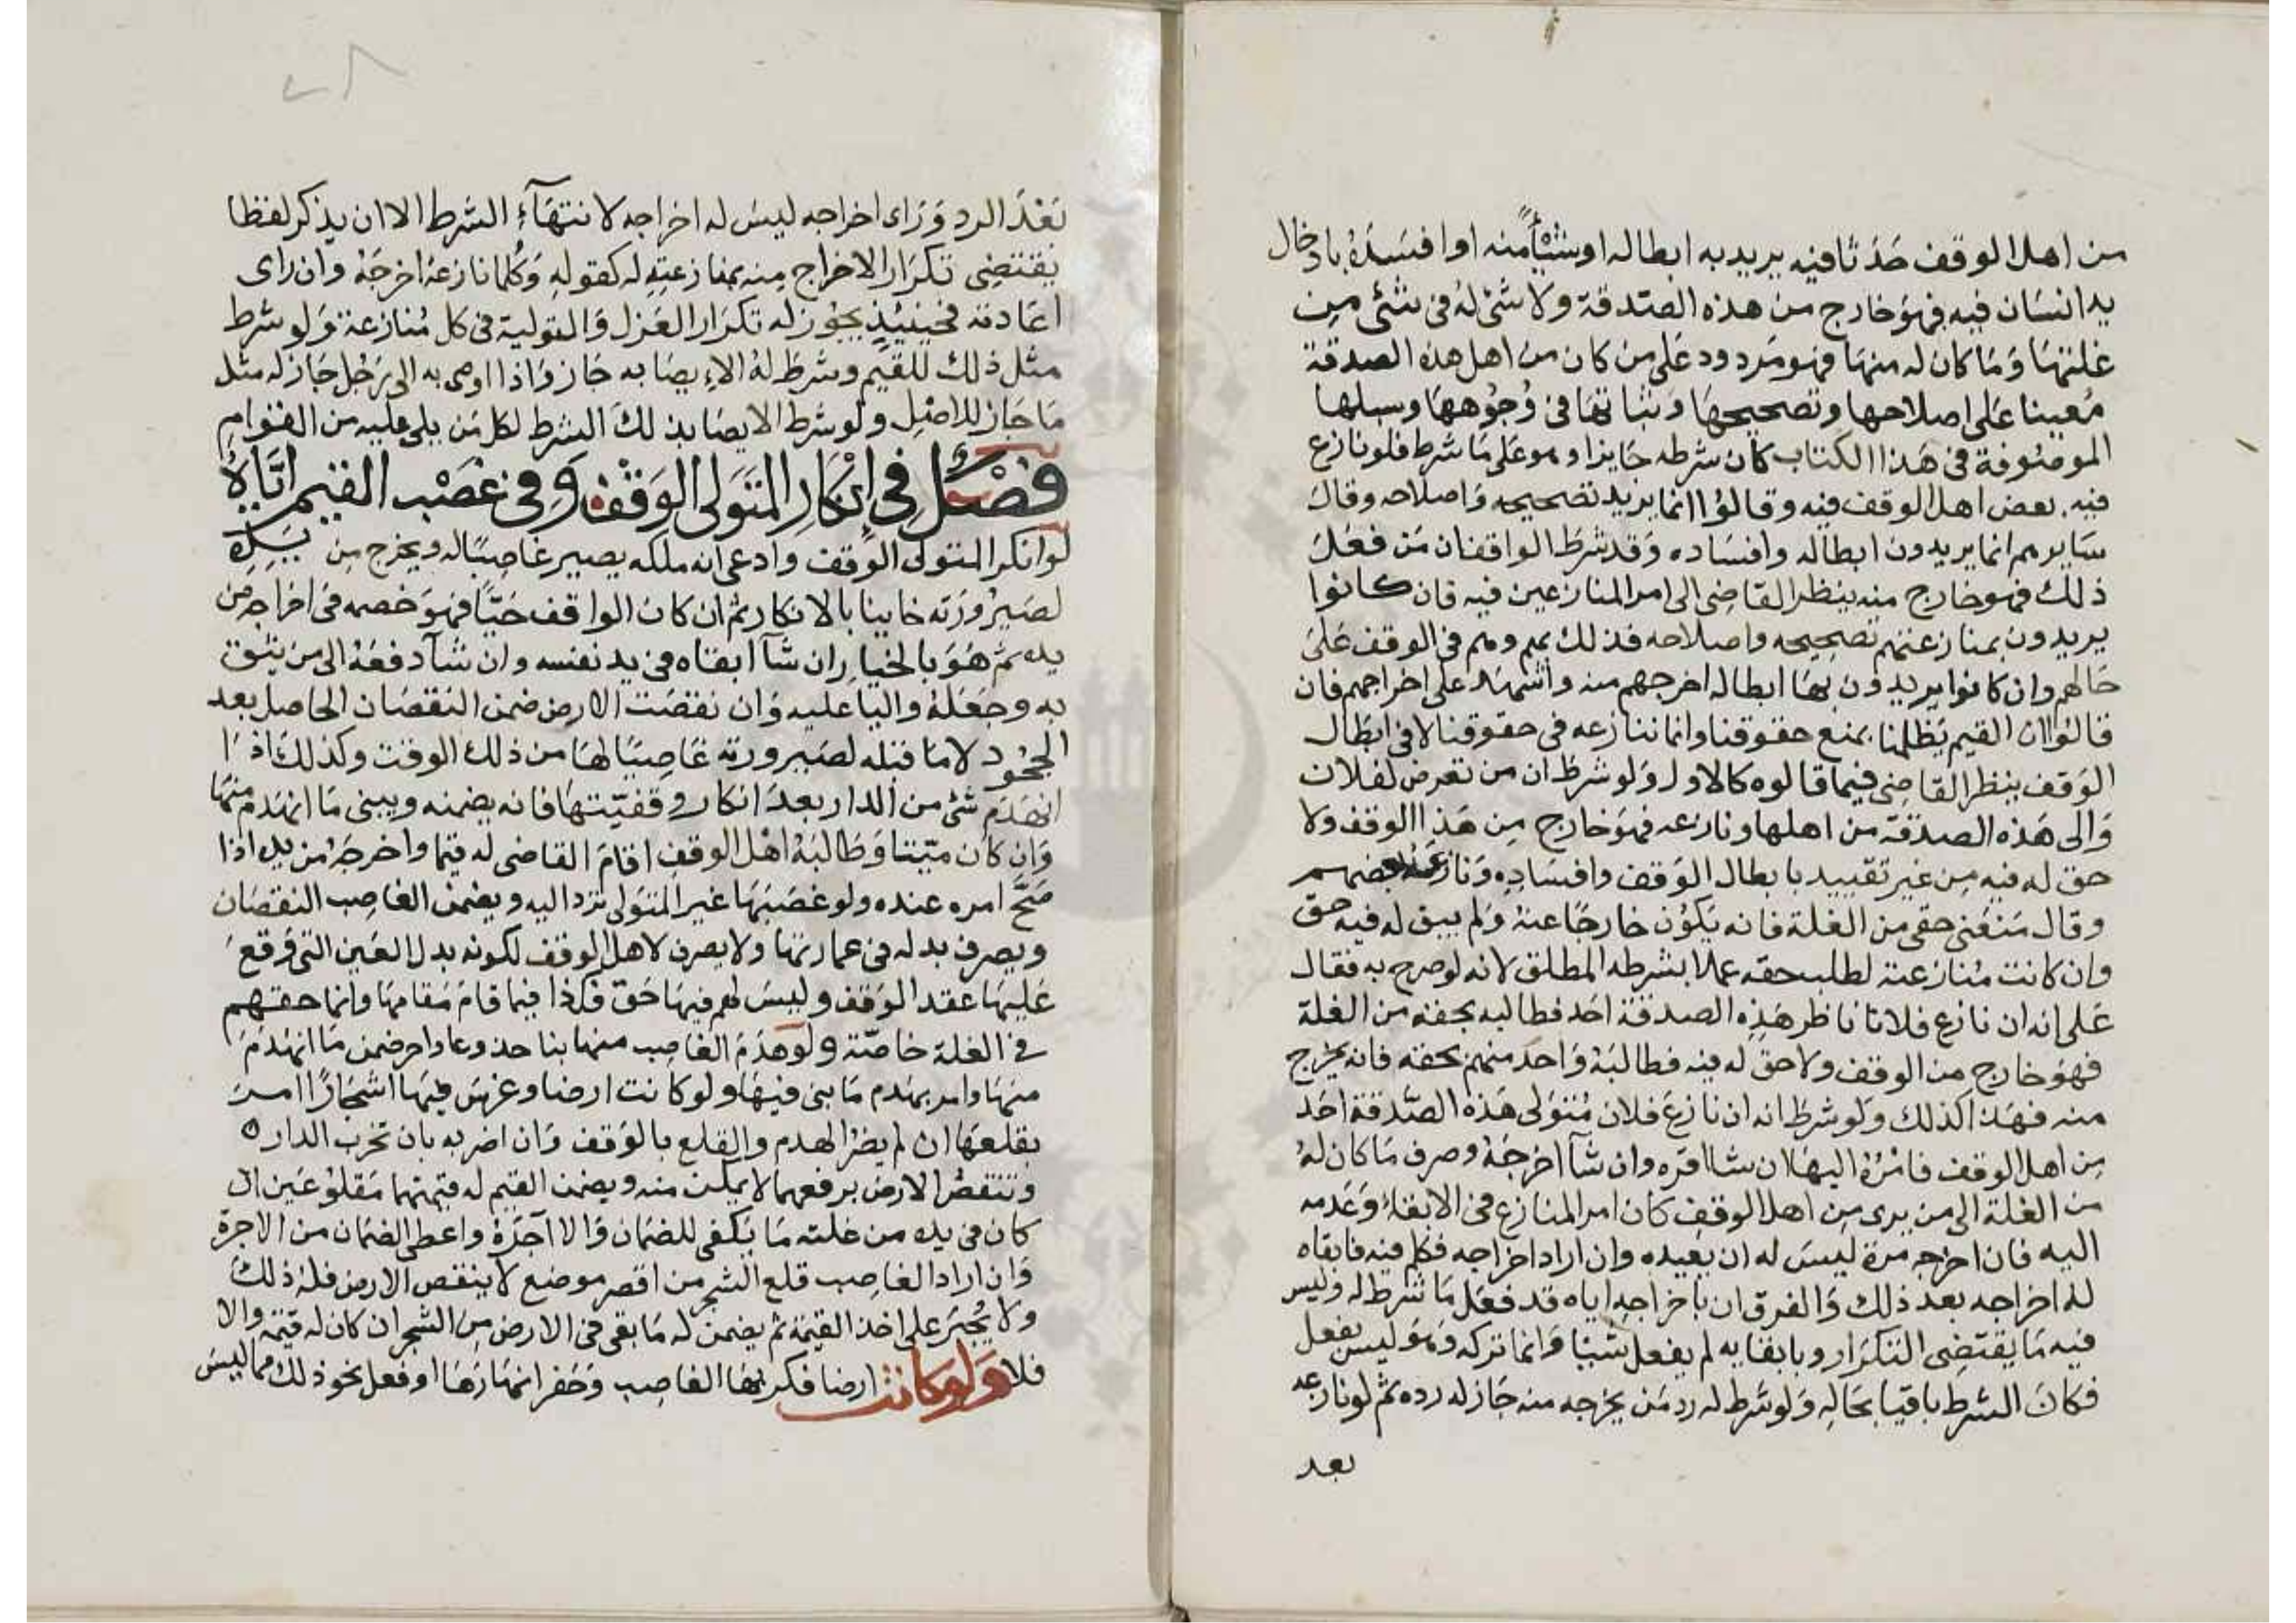 من اهل الوقف حَدَثا فيه يريد به ابطاله او شيأ منه او افسَدَهُ بادخال
يد انسَان فيه فهوَ خارج من هذه الصَّدقة ولا شئ لهُ في شئ مِن
غلتهَا وَمَا كان له منهَا فهو مَردود عَلى من كان من اهل هذه الصدقة
مُعينا عَلى اصلاحها وتصحيحهَا وثباتهَا في وُجُوههَا وسبلها
الموصُوفة في هَذا الكتاب كان شرطه جَايزا وهو عَلى مَا شرط فلو نازع
فيه بعض اهل الوقف فيه وقالوُا انما يريد تصَحيحه وَاصلاحه وقالَ
سَايرهم انما يريدون ابطاله وافسَاده وَقد شرطَ الواقف ان مَن فعَلَ
ذلك فهو خارج منه ينظر القاضِى الى امر المنازعين فيه فان كانوا
يريدون بمنازعتهم تصَحِيحه واصلاحه فذلك لهم وهم في الوقف عَلىَ
حَالهم وان كانوا يريدون بهَا ابطاله اخرجهم منه واشهَد على اخراجهم فان
قالوُا ان القيم يَظلمنا بمنع حقوقنا وانما ننازعه في حقوقنا لا في ابطَال
الوَقف ينظر القاضِى فيما قالوه كالاول وَلو شرطَ ان من تعرض لفلان
وَالى هَذه الصدقة من اهلها ونازعه فهوَ خارج مِن هَذا الوقف ولا
حق له فيه مِن غير تقييد بابطال الوَقف وافسَادِه وَنازعَه بعضهم
وقال مَنعَني حقي من الغلة فانه يَكوُن خارجًا عنهُ وَلم يبق له فيه حق
وان كانت مُنازعته لطلب حقه عملا بشرطه المطلق لانه لو صرح به فقال
عَلى انه ان نازع فلانا ناظر هَذِه الصدقة احَد فطالبه بحقه من الغلة
فهوَ خارج من الوقف ولا حق له فيه فطالبَهُ وَاحدَ منهم بحقه فانه يخرج
منه فهَذا كذلك وَلو شرطَ انه ان نازعَ فلان مُتوَلى هَذه الصَّدقة احَد
مِن اهل الوقف فامْرُهُ اليهَا ان شا اقره وان شآ اخرجَهُ وصرف مَا كان لهُ
من الغلة الى من يرى مِن اهل الوقف كان امر المنازع في الابقاء وَعَدمه
اليه فان اخرجه مرة ليسَ له ان يعيده وان اراد اخراجه فكلم فيه فابقاه
له اخراجه بعد ذلك وَالفرق ان باخراجِه اياه قد فعَل مَا شرط له وليس
فيه مَا يقتضِى التكرَار وبابقايه لم يفعل شيئا وَانما تركه وَهوَ ليس بفعل
فكانَ الشرطَ باقيا بحَالِه وَلو شَرط له رد مَن يخرجه منه جَاز له رده ثم لو نازعه
بعد
بَعْدَ الرد وَرَاى اخراجه ليسَ له اخراجه لانتهَآءِ الشرط الا ان يذكر لفظا
يقتضِى تكرَار الاخراج مِنه بمنازعتِهِ له كقولِهِ وَكُلما نازعَهُ اخرجَهُ وان راى
اعَادته فحينيئذٍ يجوُز له تكرَار العَزل وَالتولية في كل مُنازعة وَلو شرط
مثل ذلك للقيّم وشرطَ لهُ الاِيصَا به جَاز وَاذا اوصى به الى رَجُل جَاز له مثل
مَا جَاز للاصْل ولو شرط الايصَا بذلكَ الشرط لكل مَن يلى عليه من القوامِ
فصْل في اِنْكار المتَوَلى الوَقْف وَفي غصْب القيم ايّاهُ
لو انكر المتولى الوَقف وادعى انه ملكه يصير غاصِبًا له ويخرج مِن يَدِهِ
لصَيرُورَته خاينا بالانكار ثم ان كان الواقف حَيًّا فهوَ خصمه في اخراجه من
يده ثم هُوَ بالخيارِ ان شآ ابقاه في يد نفسه وان شآ دفعَهُ الى من يثق
به وجَعَلهُ واليا عليه وَان نقصَت الارض ضمن النقصَان الحاصل بعد
الجحُود لا مَا قبله لصَيرورته غاصِبًا لهَا من ذلك الوقت وكذلكَ اذا
انهدَم شئ من الدار بعدَ انكاره وقفيّتهَا فانه يضمنه ويبنى مَا انهدَم منهَا
وَان كان ميّتا وَطَالبَهُ اهْل الوقفِ اقامَ القاضى له قيما واخرجَهُ من يده اذا
صَحَّ امره عنده ولو غصَبَهَا غير المتولى ترد اليه ويضمن الغاصِب النقصَان
ويصرف بدله في عمارتها ولا يصرف لاهل الوقف لكونه بدل العَين التي وَقعَ
عَليهَا عقد الوَقف وليسَ لهم فيهَا حَق فكذا فيما قامَ مَقامهَا وانما حقهم
في الغلة خاصّة ولو هَدَمَ الغاصِب منها بناحذ وعاداحر ضمن مَا انهدَمَ
منهَا وامر بهدم مَا بنى فيهَا ولو كانت ارضا وغرسَ فيهَا اشجَارًا امرَ
بقلعهَا ان لم يضرُ الهدم والقلع بالوَقف وَان اضر به بان تخرب الداره
وتنقصُ الارض برفعهما لا يمكن منه ويضمن القيم له قيمتهما مَقلوُعَين ان
كان في يده من غلته مَا يَكفى للضمَان وَالا آجَرَهُ واعطى الضمَان من الاجرَة
وَان اراد الغاصِب قلع الشجر من اقصر موضع لا ينقص الارض فلهُ ذلكَ
ولا يُجبَر على اخذ القيمَة ثم يضمنُ له مَا بقى في الارض مِنَ الشجر ان كان له قيمة والا
فلا وَلو كانت ارضا فكربهَا الغاصِب وَحَفر انهَارَهَا او فعل نحو ذلك مما ليسَ